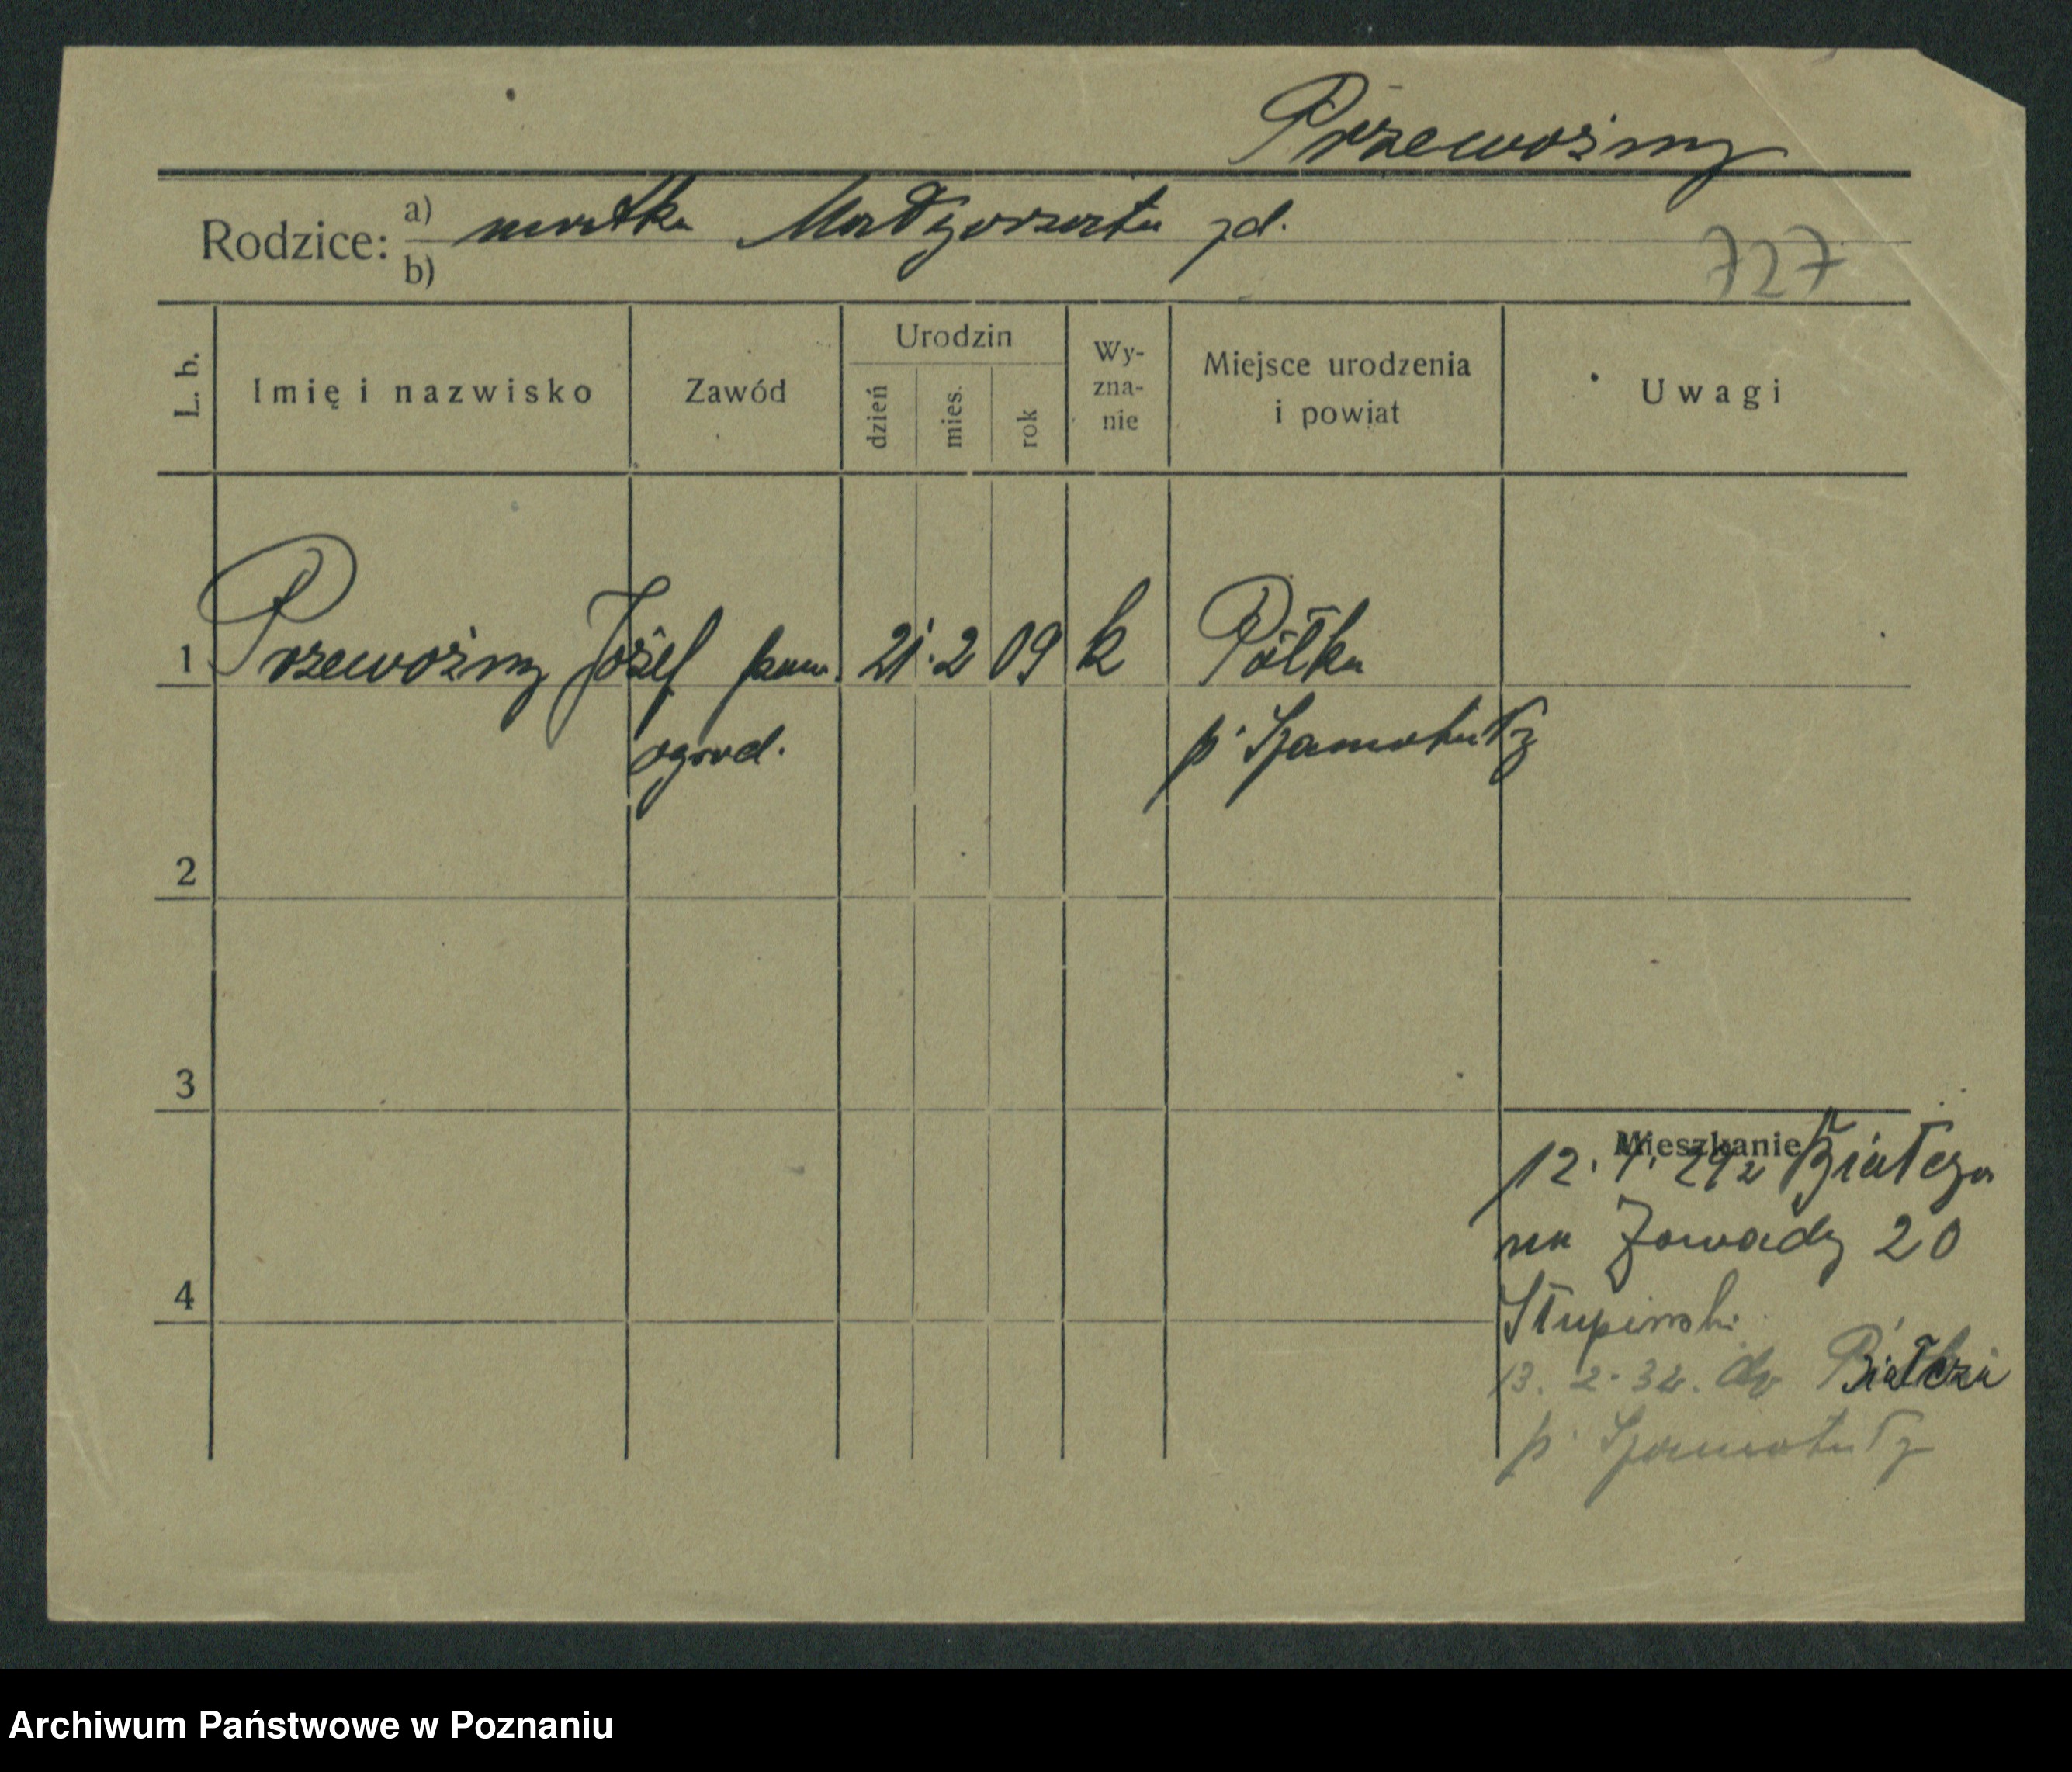 Przewoźny
Rodzice: a) matka Małgorzata zd.
b)
727
L. b.
Imię i nazwisko
Zawód
Urodzin
dzień
mies.
rok
Wy-
zna-
nie
Miejsce urodzenia
i powiat
Uwagi
1 Przewoźny Józef pom. 21. 2 09 k Pólka
ogrod. p. Szamotuły
2
3
Mieszkanie
12. 1. z Białcza
na Zawady 20
4
Słupiński
13. 2. 32. do Białcza
p. Szamotuły
Archiwum Państwowe w Poznaniu